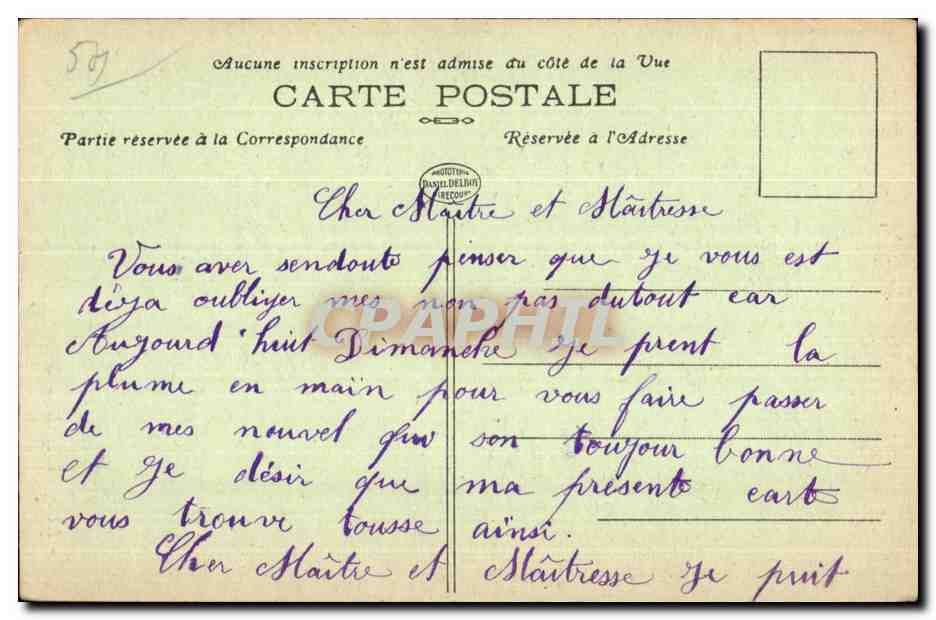 50f
Aucune inscription n'est admise du côté de la Vue
CARTE POSTALE
Partie réservée à la Correspondance
Réservée à l'Adresse
PHOTOTYPIE
DANIEL DELBOY
MIRECOURT
Cher Maître et Maîtresse
Vous aver sendoute penser que je vous est
déja oubliyer mes non pas dutout car
Aujourd'huit Dimanche je prent la
plume en maïn pour vous faire passer
de mes nouvel qui son toujour bonne
et je désir que ma présente carte
vous trouve tousse aïnsi.
Cher Maître et Maîtresse je puit
CPAPHIL